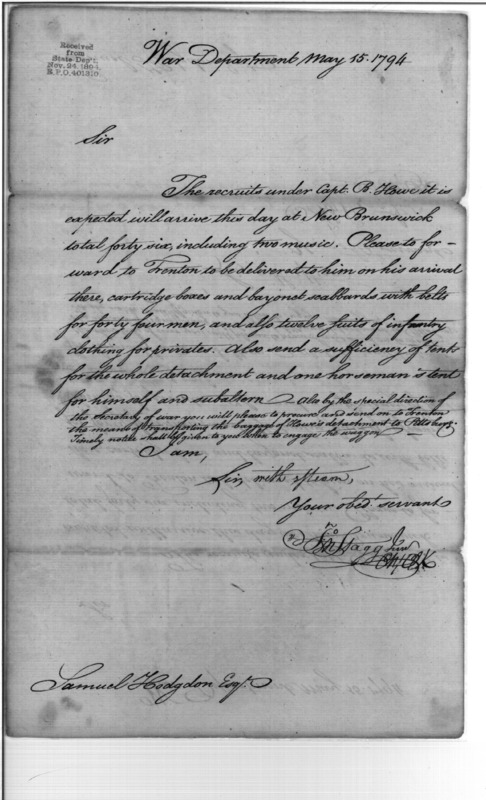 Received
from
State Dep't.
Nov. 24, 1894,
R.P.O. 401310.
War Department May 15. 1794
Sir
The recruits under Capt. B. Howe it is
expected will arrive this day at New Brunswick
total forty six, including two music. Please to for-
ward to Trenton to be delivered to him on his arrival
there, cartridge boxes and bayonet scabbards with belts
for forty four men, and also twelve suits of infantry
clothing for privates. Also send a sufficiency of tents
for the whole detachment and one horseman's tent
for himself and subaltern Also by the special direction of
the Secretary of war you will please to procure and send on to Trenton
the means of transporting the baggage of Howe's detachment to Pittsburg.
Timely notice shall be given to you when to engage the waggon
I am,
Sir, with esteem,
Your obed. servant
Jno Stagg Junr
Ch. Clk
Samuel Hodgdon Esqr.